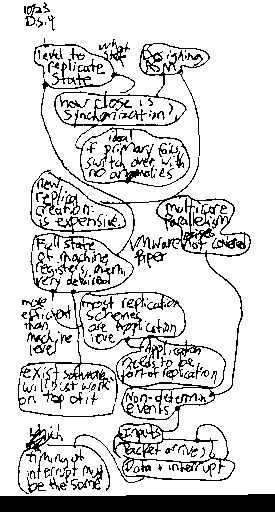 10/23
D.S.4
level to
replicate
State
what
state
Designing
RSM
how close is
synchronization?
ideal
if primary fails,
switch over with
no anomalies
new
replica
creation
is expensive.
Full state
of machine
registers, mem,
very detailed
multicore
parallelism
not covered
VMware
Paper
more
efficient
than
machine
level
most replication
schemes
are application
level
application
needs to be
part of replication
exist software
will just work
on top of it
Non-determin
events
Inputs
packet arrives,
Data + interrupt
timing of
interrupt must
be the same